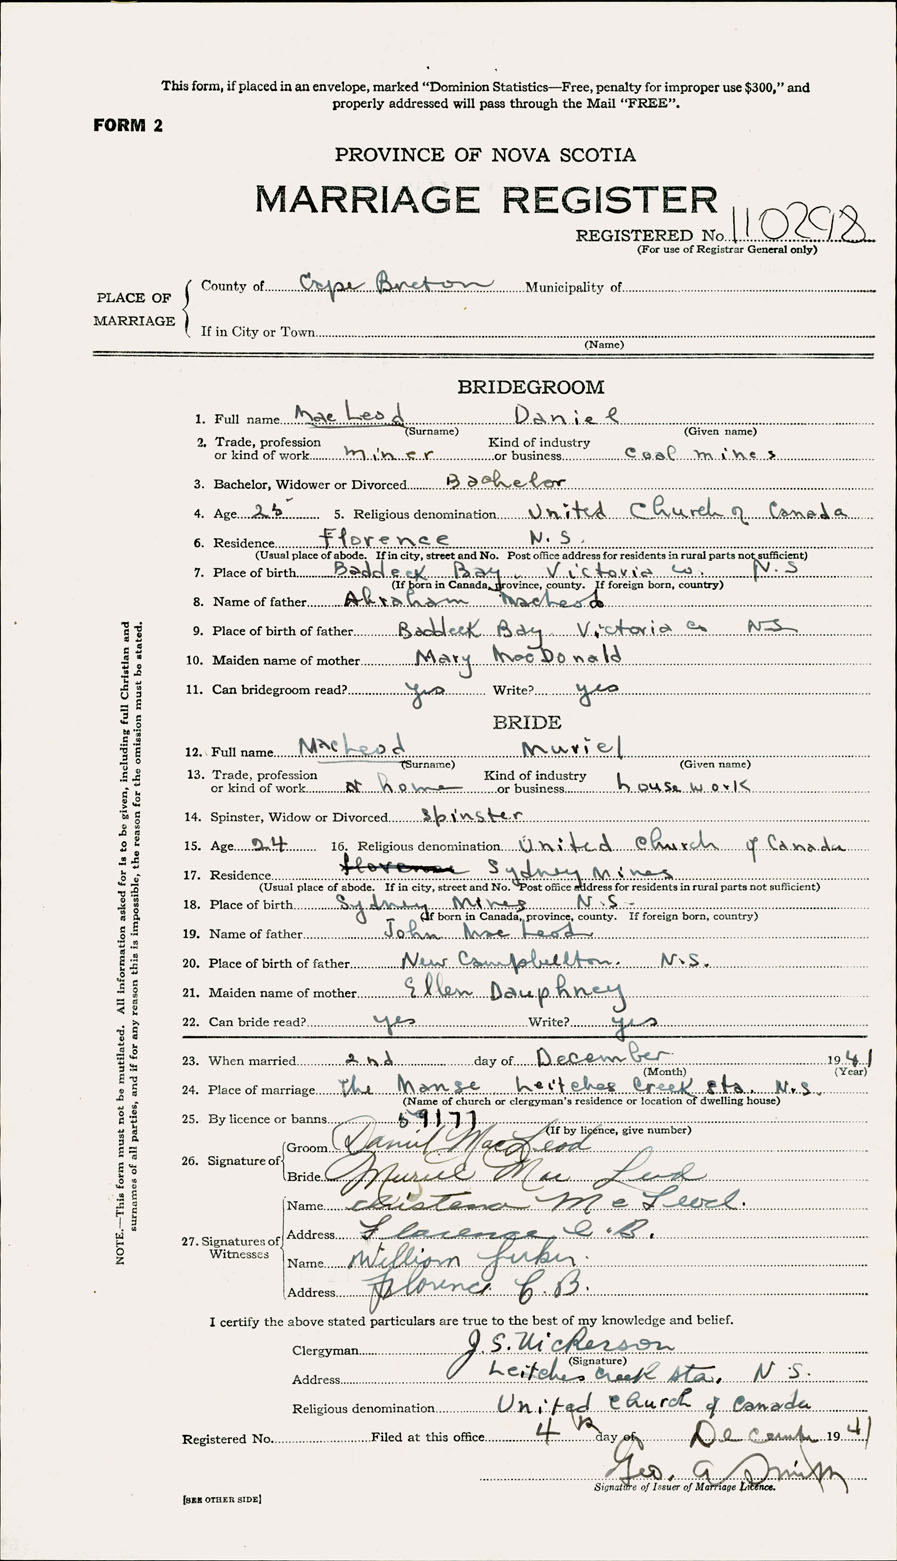 This form, if placed in an envelope, marked “Dominion Statistics—Free, penalty for improper use $300,” and
properly addressed will pass through the Mail “FREE”.
FORM 2
PROVINCE OF NOVA SCOTIA
MARRIAGE REGISTER
REGISTERED No. 110298
(For use of Registrar General only)
PLACE OF MARRIAGE
County of Cape Breton Municipality of
If in City or Town
(Name)
BRIDEGROOM
1. Full name MacLeod Daniel
(Surname) (Given name)
2. Trade, profession or kind of work miner Kind of industry or business coal mines
3. Bachelor, Widower or Divorced Bachelor
4. Age 25 5. Religious denomination United Church of Canada
6. Residence Florence N.S.
(Usual place of abode. If in city, street and No. Post office address for residents in rural parts not sufficient)
7. Place of birth Baddeck Bay Victoria co. N.S
(If born in Canada, province, county. If foreign born, country)
8. Name of father Abraham MacLeod
9. Place of birth of father Baddeck Bay Victoria co NS
10. Maiden name of mother Mary MacDonald
11. Can bridegroom read? yes Write? yes
BRIDE
12. Full name MacLeod Muriel
(Surname) (Given name)
13. Trade, profession or kind of work at home Kind of industry or business house work
14. Spinster, Widow or Divorced Spinster
15. Age 24 16. Religious denomination United Church of Canada
17. Residence Florence Sydney Mines
(Usual place of abode. If in city, street and No. Post office address for residents in rural parts not sufficient)
18. Place of birth Sydney Mines N.S.
(If born in Canada, province, county. If foreign born, country)
19. Name of father John MacLeod
20. Place of birth of father New Campbellton. N.S.
21. Maiden name of mother Ellen Dauphney
22. Can bride read? yes Write? yes
23. When married 2nd day of December 1941
(Month) (Year)
24. Place of marriage The Manse Leitches Creek Sta. N.S.
(Name of church or clergyman's residence or location of dwelling house)
25. By licence or banns 59177
(If by licence, give number)
26. Signature of
Groom Daniel MacLeod
Bride Muriel Mac Leod
27. Signatures of Witnesses
Name Christena McLeod.
Address Florence C.B.
Name William
Address Florence C.B.
I certify the above stated particulars are true to the best of my knowledge and belief.
Clergyman J.S. Nickerson
(Signature)
Address Leitches Creek Sta. N.S.
Religious denomination United Church of Canada
Registered No. Filed at this office 4th day of December 1941
Geo. A Smith
Signature of Issuer of Marriage Licence.
[SEE OTHER SIDE]
NOTE.—This form must not be mutilated. All information asked for is to be given, including full Christian and
surnames of all parties, and if for any reason this is impossible, the reason for the omission must be stated.